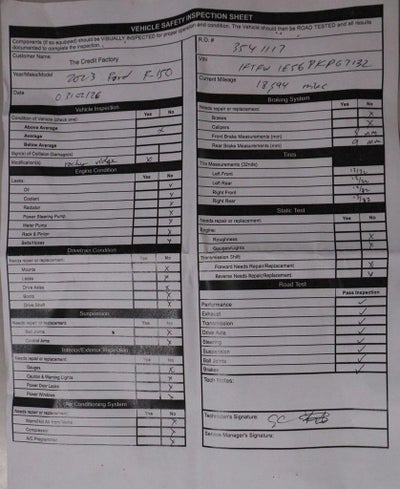 VEHICLE SAFETY INSPECTION SHEET
Components (if so equipped) should be VISUALLY INSPECTED for proper operation and condition. The Vehicle should then be ROAD TESTED and all results
documented to complete the inspection.
Customer Name:
The Credit Factory
Year/Make/Model
2023 Ford F-150
Date
03/02/26
Vehicle Inspection
Condition of Vehicle (check one) Yes No
Above Average
Average
Below Average
Sign(s) of Collision Damage(s)
Modification(s) X
Engine Condition
Leaks: Yes No
Oil
Coolant
Radiator
Power Steering Pump
Water Pump
Rack & Pinion
Belts/Hoses
Drivetrain Condition
Needs repair or replacement: Yes No
Mounts X
Leaks X
Drive Axles X
Boots X
Drive Shaft X
Suspension
Needs repair or replacement: Yes No
Ball Joints X
Control Arms X
Interior/Exterior Inspection
Needs repair or replacement: Yes No
Gauges X
Caution & Warning Lights X
Power Door Locks X
Power Windows X
Air Conditioning System
Yes No
Compressor X
R.O. #
3541117
VIN
Current Mileage
18,394 miles
Braking System
Needs repair or replacement: Yes No
Brakes X
Calipers X
Front Brake Measurements (mm) 8 mm
Rear Brake Measurements (mm) 9 mm
Tires
Tire Measurements (32nds)
Left Front
Left Rear
Right Front
Right Rear
Static Test
Needs repair or replacement: Yes No
Engine:
Roughness X
Gauges/Lights X
Transmission Shift:
Forward Needs Repair/Replacement X
Reverse Needs Repair/Replacement X
Road Test
Pass Inspection
Performance ✓
Exhaust ✓
Transmission ✓
Drive Axle ✓
Steering ✓
Suspension ✓
Ball Joints ✓
Brakes ✓
Tech Notes:
Technician's Signature:
Service Manager's Signature: